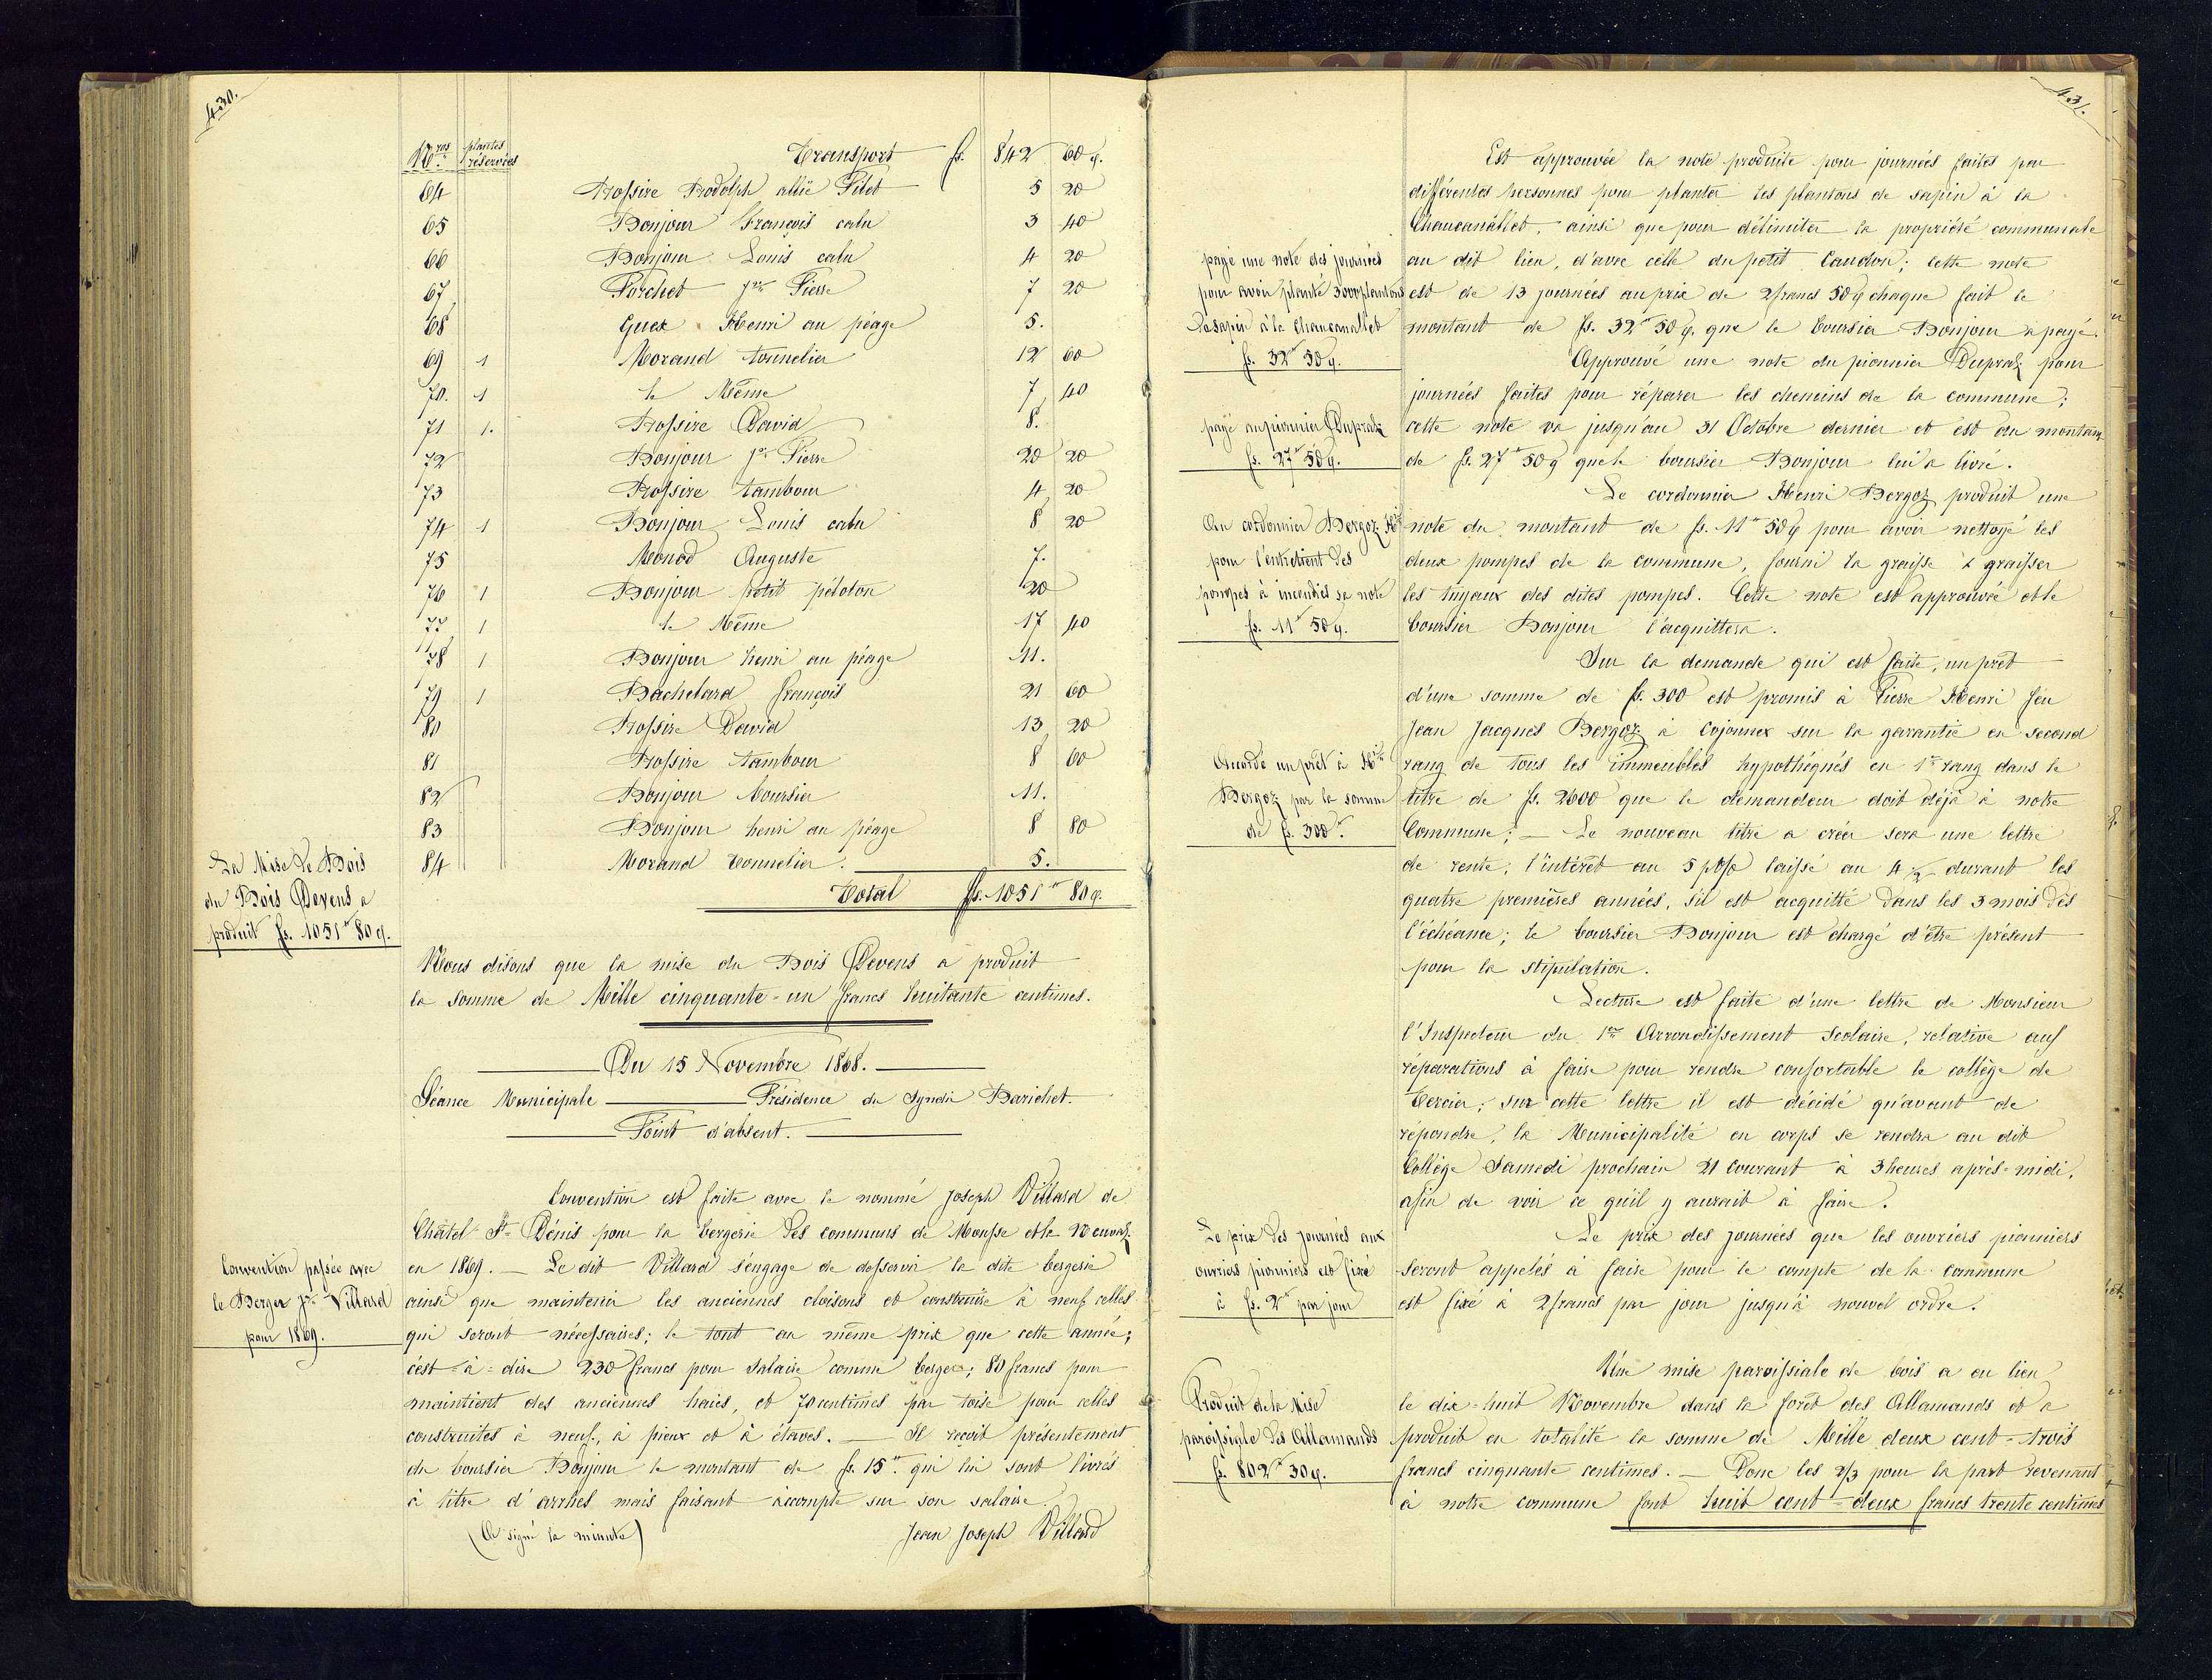 430.
N.ros plantes réservées Transport fs. 842 60 ç.
64 Trossire Rodolph allié Pilet 5 20
65 Bonjour François calu 3 40
66 Bonjour Louis calu 4 20
67 Porchet Jn Pierre 7 20
68 Guex Henri au péage 5.
69 1 Morand tonnelier 12 60
70. 1 le Même 7 40
71 1. Trossire David 8.
72 Bonjour Jn Pierre 20 20
73 Trossire tambour 4 20
74 1 Bonjour Louis calu 8 20
75 Monod Auguste 7.
76 1 Bonjour petit péloton 20
77 1 le Même 17 40
78 1 Bonjour henri au péage 11.
79 1 Bachelard françois 21 60
80 Trossire David 13 20
81 Trossire tambour 8 60
82 Bonjour boursier 11.
83 Bonjour henri au péage 8 80
84 Morand tonnelier. 5.
Total fs. 1051 " 80 ç.
La Mise de Bois
du Bois Devens a
produit fs. 1051 " 80 ç.
Nous disons que la mise du Bois Devens a produit
la somme de Mille cinquante-un francs huitante centimes.
Du 15 Novembre 1868.
Séance Municipale Présidence du Syndic Barichet.
Point d'absent.
Convention est faite avec le nommé Joseph Villard de
Châtel St Dénis pour la bergerie des communs de Mousse et la Neuvaz
en 1869. — Le dit Villard s'engage de desservir la dite bergerie
ainsi que maintenir les anciennes cloisons et construire à neuf celles
qui seront nécessaires; le tout au même prix que cette année;
c'est-à-dire 230 francs pour salaire comme berger; 80 francs pour
maintient des anciennes haies, et 70 centimes par toise pour celles
construites à neuf, à pieux et à élaves. — Il reçoit présentement
du boursier Bonjour le montant de fs. 15 ". qui lui sont livrés
à titre d'arrhes mais faisant àcompte sur son salaire.
(A signé la minute) Jean Joseph Villard
Convention passée avec
le Berger Jh Villard
pour 1869.
431.
Est approuvée la note produite pour journées faites par
différentes personnes pour planter les plantons de sapin à la
Chaucanallet, ainsi que pour délimiter la propriété communale
au dit lieu, d'avec celle du petit Caudoz; cette note
est de 13 journées au prix de 2 francs 50 ç chaque fait le
montant de fs. 32 " 50 ç. que le boursier Bonjour a payé.
payé une note des journées
pour avoir planté 3000 plantons
de sapin à la Chaucanallet
fs. 32 " 50 ç.
Approuvé une note du pionnier Dupraz pour
journées faites pour réparer les chemins de la commune;
cette note va jusqu'au 31 Octobre dernier et est du montant
de fs. 27 " 50 ç que le boursier Bonjour lui a livré.
payé au pionnier Dupraz
fs. 27 " 50 ç.
Le cordonnier Henri Bergoz produit une
note du montant de fs. 11 " 50 ç pour avoir nettoyé les
deux pompes de la commune, fourni la graisse & graisser
les tuyaux des dites pompes. Cette note est approuvée et le
boursier Bonjour l'acquittera.
Au cordonnier Bergoz Hri
pour l'entretient des
pompes à incendies sa note
fs. 11 " 50 ç.
Sur la demande qui est faite, un prêt
d'une somme de fs. 300 est promis à Pierre Henri feu
Jean Jacques Bergoz à Cojonnex sur la garantie en second
rang de tous les immeubles hypothéqués en 1er rang dans le
titre de fs. 2600 que le demandeur doit déjà à notre
Commune; — Le nouveau titre a créer sera une lettre
de rente, l'intérêt au 5 p% laissé au 4 1/2 durant les
quatre premières années, s'il est acquitté dans les 3 mois dès
l'échéance; le boursier Bonjour est chargé d'être présent
pour la stipulation.
Accordé un prêt à Hri
Bergoz par la somme
de fs. 300 ".
Lecture est faite d'une lettre de Monsieur
l'Inspecteur du 1er Arrondissement Scolaire, relative aux
réparations à faire pour rendre confortable le collège de
Tercier; sur cette lettre il est décidé qu'avant de
répondre, la Municipalité en corps se rendra au dit
Collège Samedi prochain 21 courant à 3 heures après-midi,
afin de voir ce qu'il y aurait à faire.
Le prix des journées que les ouvriers pionniers
seront appelés à faire pour le compte de la commune
est fixé à 2 francs par jour jusqu'à nouvel ordre.
Le prix des journées aux
ouvriers pionniers est fixé
à fs. 2 " par jour
Une mise paroissiale de bois a eu lieu
le dix-huit Novembre dans la forêt des Allamands et a
produit en totalité la somme de Mille deux cent-trois
francs cinquante centimes. — Donc les 2/3 pour la part revenant
à notre commune font huit cent-deux francs trente centimes
Produit de la Mise
paroissiale des Allamands
fs. 802 " 30 ç.